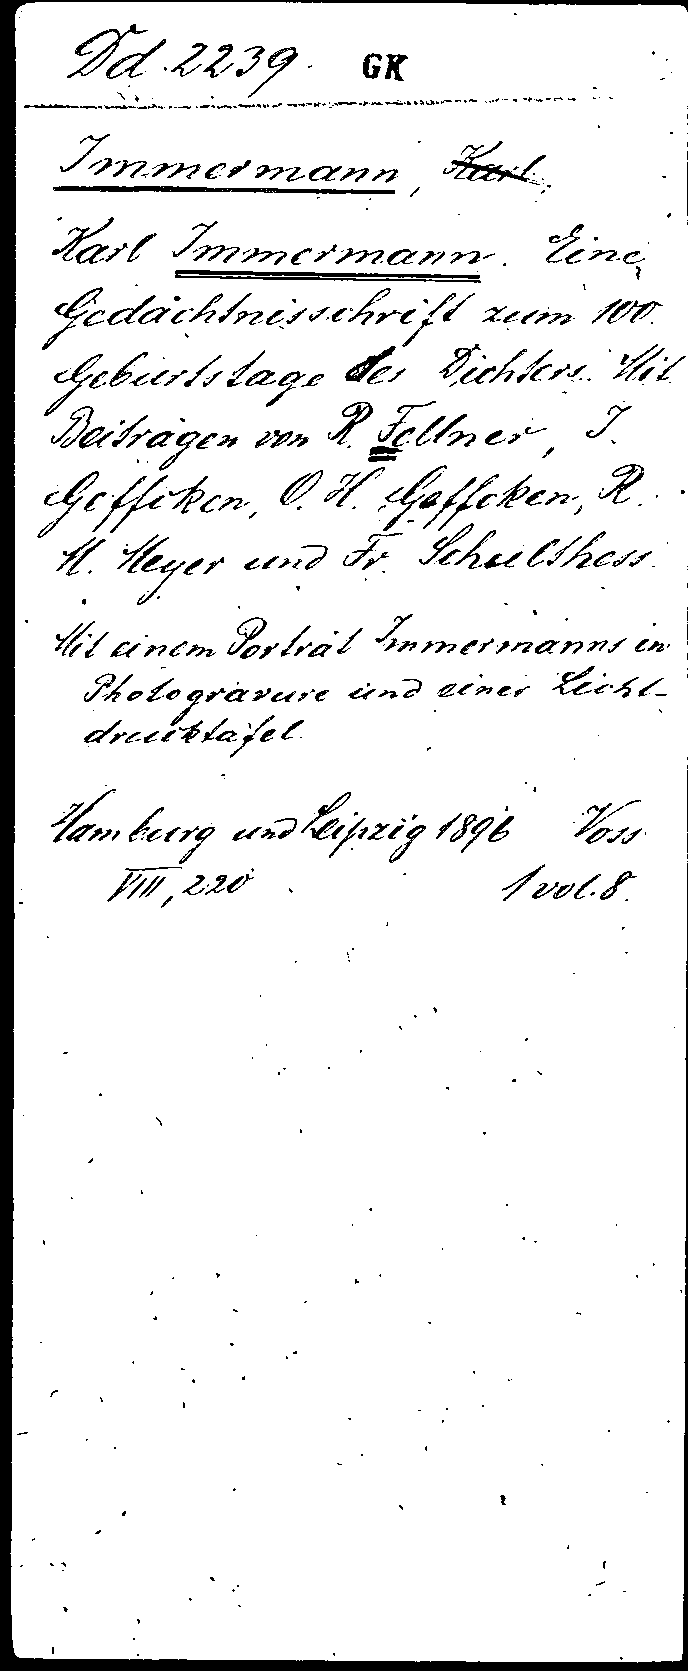 Dd. 2239. GK
Immermann, Karl.
Karl Immermann. Eine
Gedächtnisschrift zum 100.
Geburtstage des Dichters. Mit
Beiträgen von R. Fellner, J.
Geffcken, O. H. Geffcken, R.
M. Meyer und Fr. Schulthess.
Mit einem Porträt Immermanns in
Photogravure und einer Licht-
drucktafel.
Hamburg und Leipzig 1896 Voss
VIII, 220 1 vol. 8.